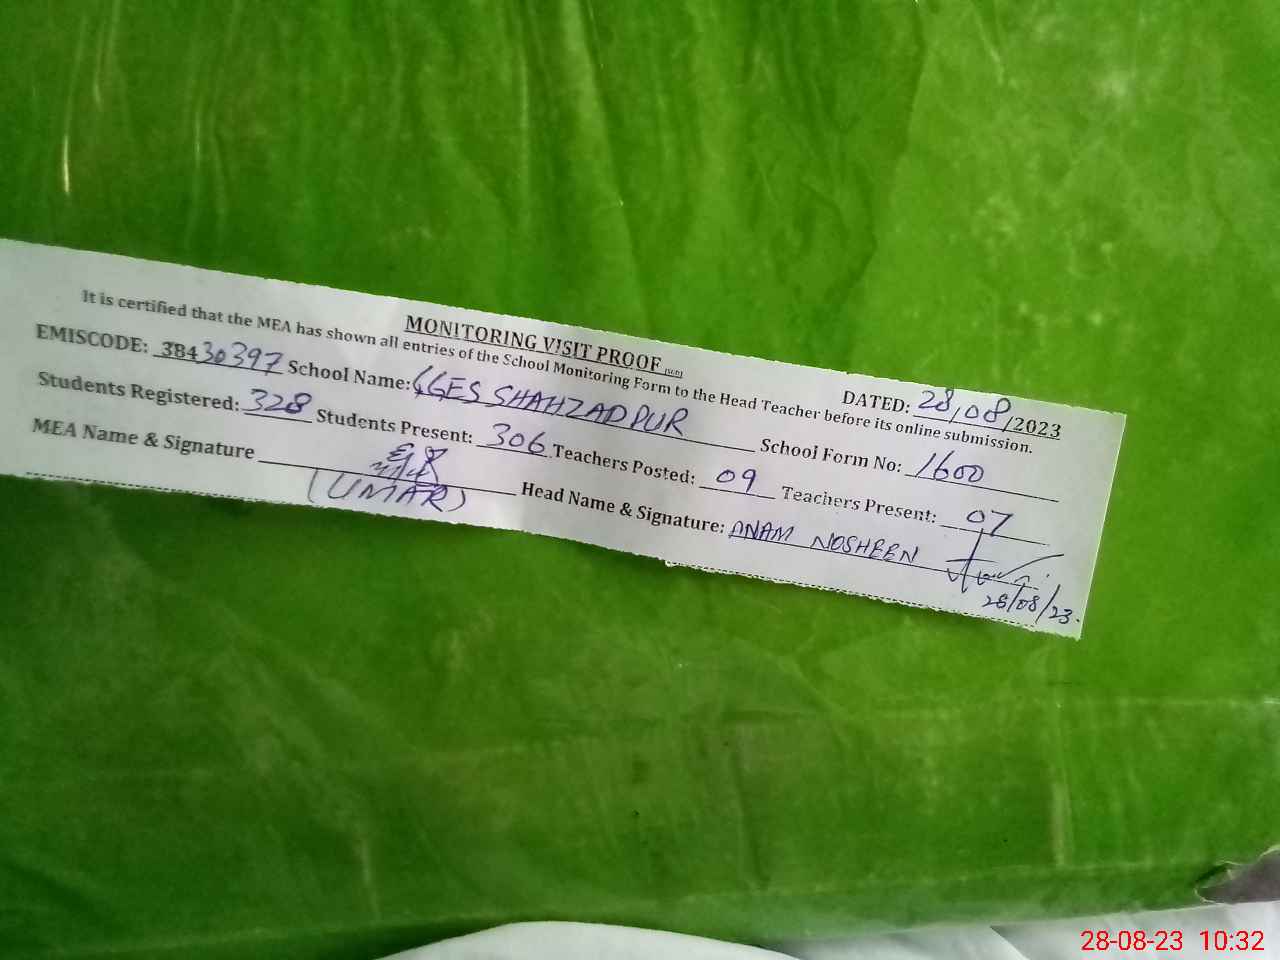 MONITORING VISIT PROOF
DATED: 28/08/2023
It is certified that the MEA has shown all entries of the School Monitoring Form to the Head Teacher before its online submission.
EMISCODE: 38430397 School Name: GGES SHAHZADPUR School Form No: 1600
Students Registered: 328 Students Present: 306 Teachers Posted: 09 Teachers Present: 07
MEA Name & Signature (UMAR) Head Name & Signature: ANAM NOSHEEN
28/08/23.
28-08-23 10:32